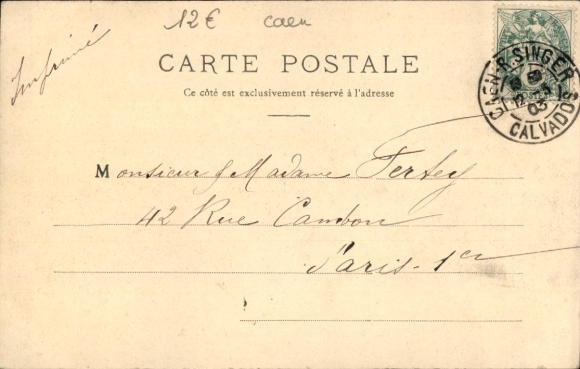 12€ Caen
Imprimé
CARTE POSTALE
Ce côté est exclusivement réservé à l'adresse
CAEN-R. SINGER
12
03
CALVADOS
Monsieur & Madame Fertey
42 Rue Cambon
Paris-1er